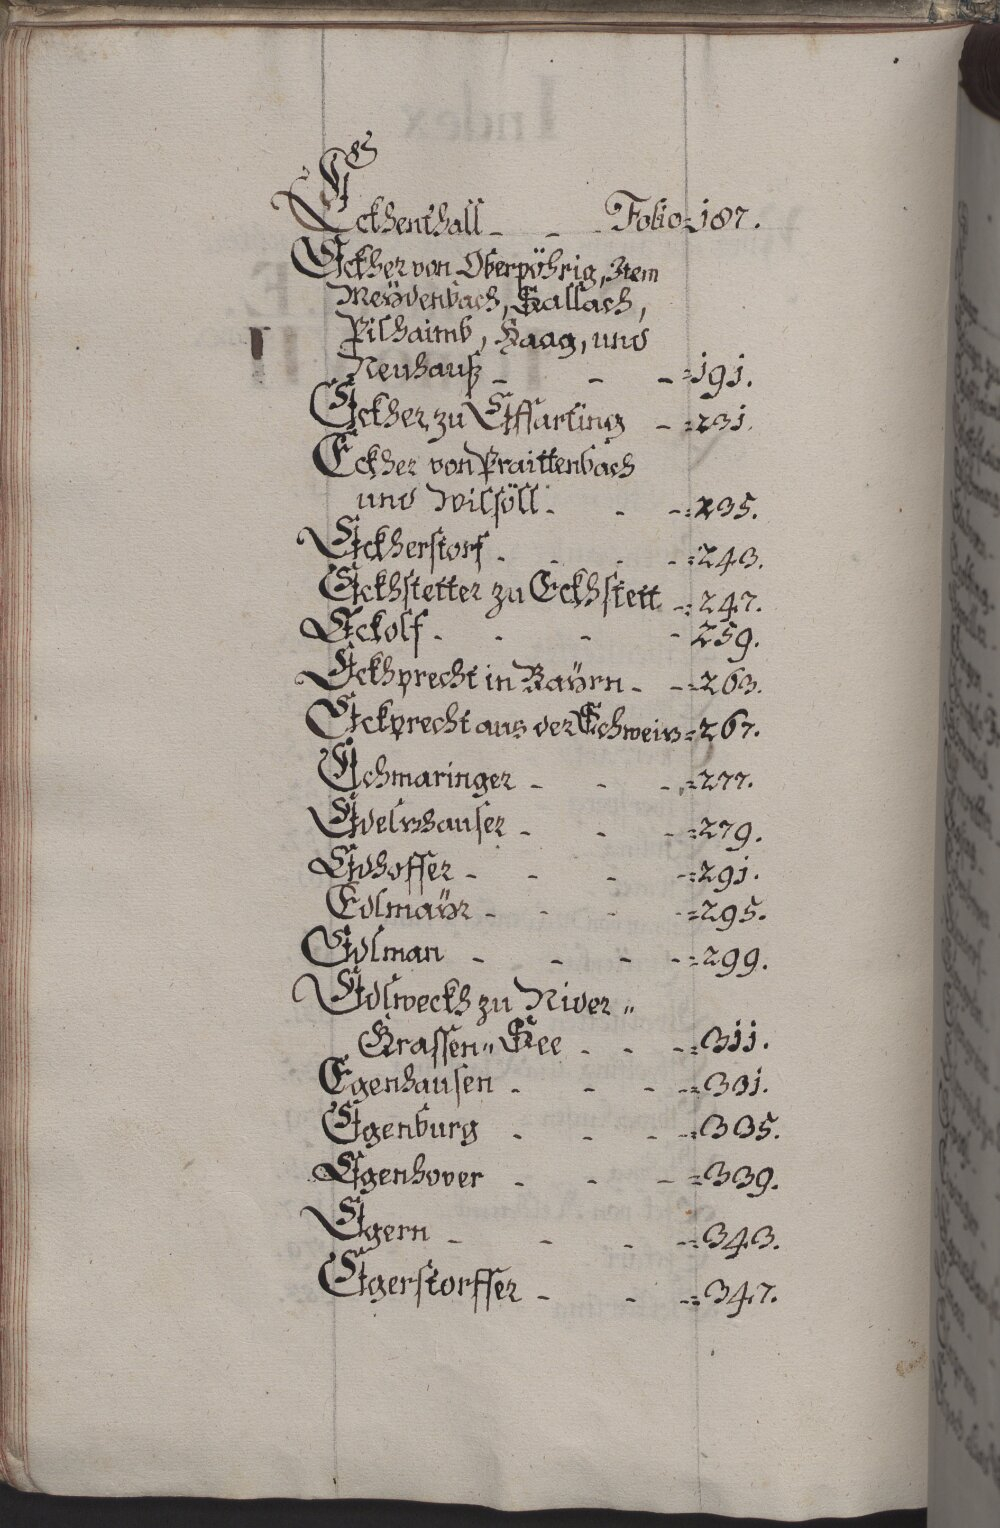 E
Eckhenthall - - - Folio 187.
Eckher von Oberpöhrig, Item
Meydenbach, Kallach,
Pilhaimb, Haag, und
Neuhauß - - - 191.
Eckher zu Effarting - 231.
Eckher von Praittenbach
und Wilsöll - - - 235.
Eckherstorf - - - - 243.
Eckhstetter zu Eckhstett - 247.
Eckolf - - - - 259.
Eckhprecht in Bayrn - - 263.
Eckprecht aus der Schweiz 267.
Echmaringer - - - 277.
Edelzhauser - - - 279.
Edhoffer - - - - 291.
Edlmayr - - - - 295.
Edlman - - - - 299.
Edlweckh zu Nider "
Krassen " See - - - 311.
Egenhausen - - - - 331.
Egenburg - - - - 335.
Egenhover - - - 339.
Egern - - - - 343.
Egerstorffer - - - 347.